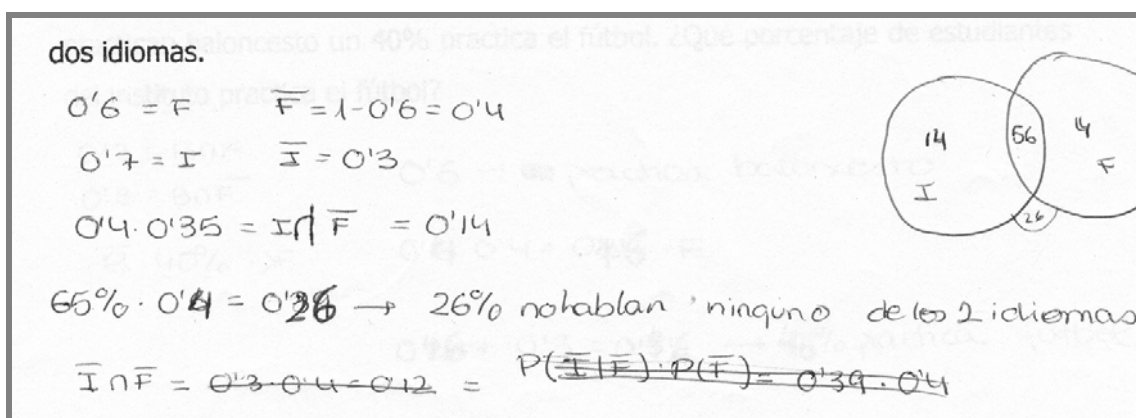 dos idiomas.
0'6 = F F̅ = 1-0'6 = 0'4
0'7 = I I̅ = 0'3
0'4 · 0'35 = I∩F̅ = 0'14
14 56 4
I F
26
65% · 0'4 = 0'26 → 26% no hablan ninguno de los 2 idiomas
I̅∩F̅ = 0'3·0'4=0'12 = P(I̅|F̅)·P(F̅)= 0'39·0'4